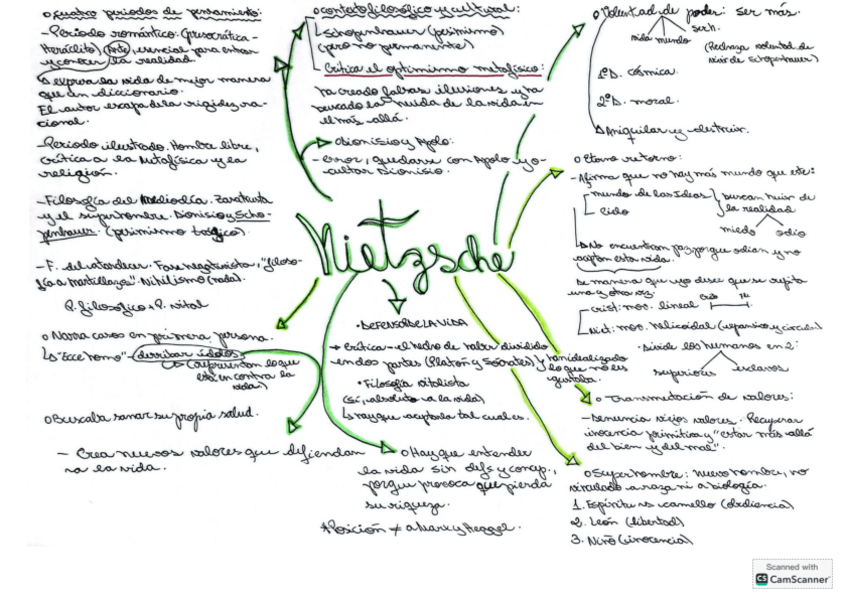 o cuatro periodos de pensamiento:
- Periodo romántico: (presocrática -
Heráclito) (Arte), esencial para entrar
y conocer la realidad.
expresa la vida de mejor manera
que un diccionario.
El autor escapa de la rigidez ra-
cional.
- Periodo ilustrado. Hombre libre,
crítica a la Metafísica y la
religión.
- Filosofía del Mediodía. Zaratustra
y el superhombre. Dionisio y Scho-
penhauer. (pesimismo trágico).
- F. del atardecer. Fase negativista, "filoso-
fía a martillazos". Nihilismo (nada).
P. filosófico + P. vital
o Narra casos en primera persona.
"Ecce homo" - derribar ídolos
(representan lo que
está en contra la
vida)
o Buscaba sanar su propia salud.
- Crea nuevos valores que defiendan
a la vida.
o contexto filosófico y cultural:
Schopenhauer (pesimismo)
(pero no permanente)
Crítica el optimismo metafísico:
ha creado falsas ilusiones y ha
buscado la huida de la vida en
el más allá.
o Dionisio y Apolo:
- error, quedarse con Apolo y o-
cultar Dionisio.
Nietzsche
• DEFENSOR DE LA VIDA
→ Crítica - el hecho de haber dividido
en dos partes (Platón y Sócrates) y han idealizado
lo que no les
gustaba.
• Filosofía vitalista
(sí, absoluto a la vida)
hay que aceptarla tal cual es.
o Hay que entender
la vida sin defs y concep.,
porque provoca que pierda
su riqueza.
* Posición ≠ a Marx y Heggel.
o Voluntad de poder: ser más.
vida mundo sech.
(Rechaza voluntad de
vivir de Schopenhauer)
1º D. cósmica.
2º D. moral.
Aniquilar y destruir.
o Eterno retorno:
- Afirma que no hay más mundo que este:
mundo de las Ideas
Cielo
buscan huir de
la realidad
miedo odio
No encuentran paz porque odian y no
aceptan esta vida.
De manera que yo desee que se repita
una y otra vez.
crist: mov. lineal
Niet: mov. helicoidal (expansivo y circular)
• Divide los humanos en 2:
superiores esclavos
o Transmutación de valores:
- Denuncia viejos valores. Recuperar
inocencia primitiva y "estar más allá
del bien y del mal".
o Superhombre: nuevo hombre, no
vinculado a raza ni a biología.
1. Espíritu vs camello (obediencia)
2. León (libertad)
3. Niño (inocencia)
Scanned with
CS CamScanner